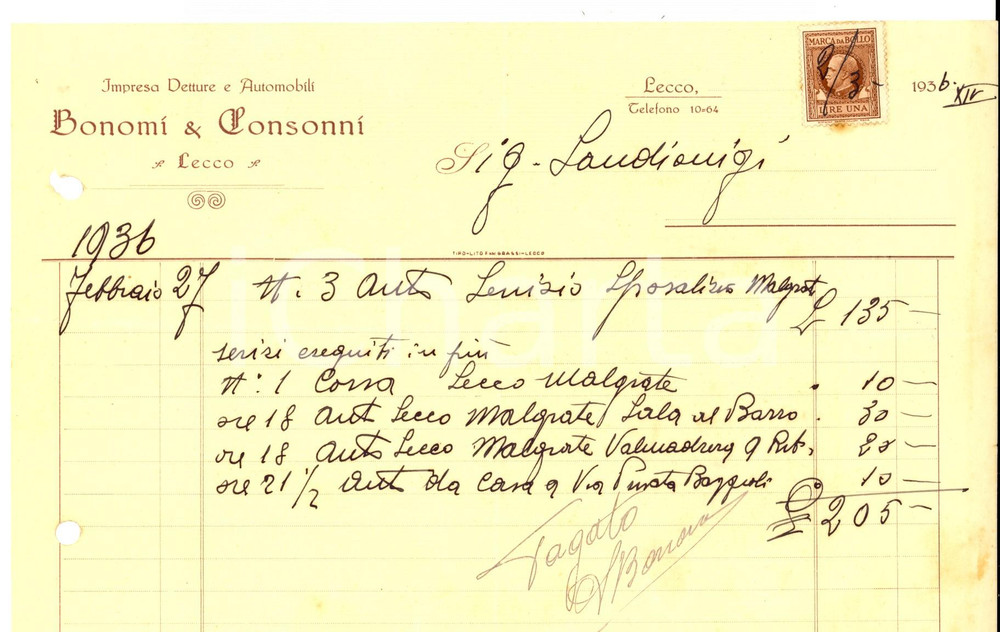 Impresa Vetture e Automobili
Bonomi & Consonni
Lecco
Lecco,
Telefono 10=64
MARCA DA BOLLO
2/3-
LIRE UNA
1936. XIV
Sig. Landionigi
1936
TIPO-LITO F.LLI GRASSI-LECCO
Febbraio 27 N. 3 Auto Servizio Sposalizio Malgrate £ 135 —
servizi eseguiti in più
N. 1 Corsa Lecco Malgrate . 10 —
ore 18 Auto Lecco Malgrate Sala al Barro . 30 —
ore 18 Auto Lecco Malgrate Valmadrera 20 —
ore 21 1/2 Auto da Casa a Via 10 —
£ 205 —
Pagato
iCharta